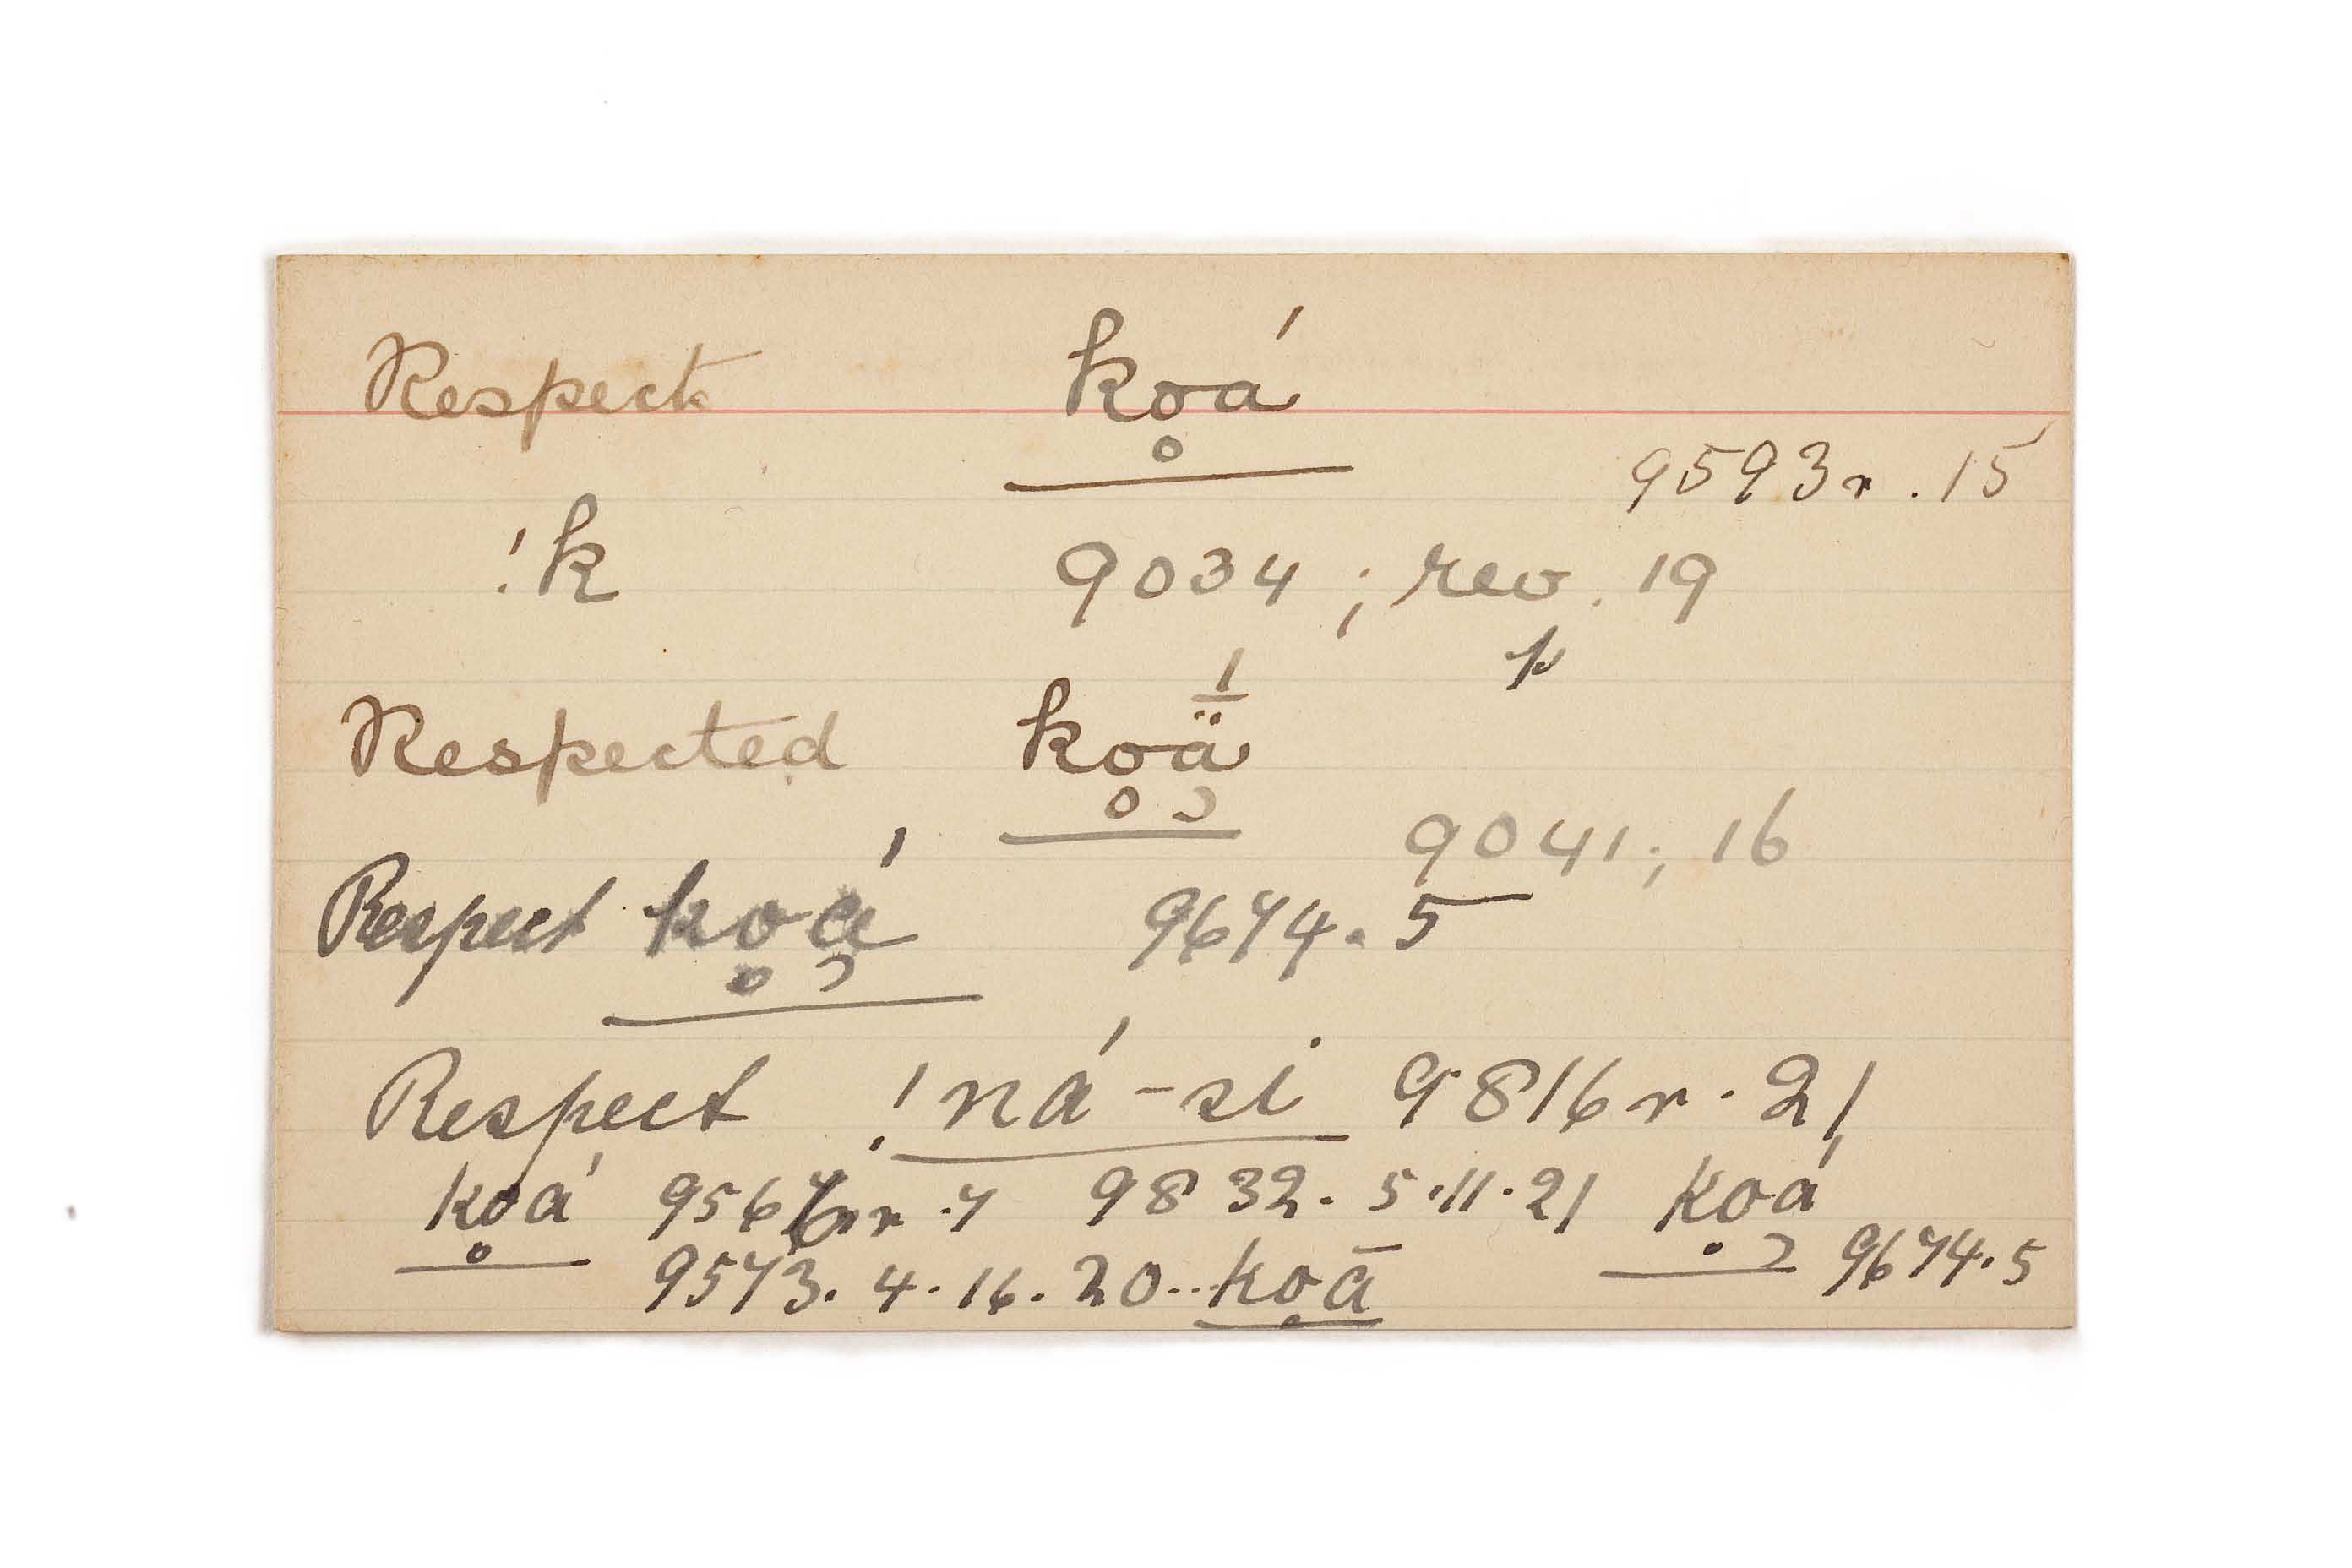 Respect ko̥á
9593r. 15
!k 9034; rev. 19
p
Respected ko̥ǟ̹́
9041; 16
Respect ko̥á̹ 9674. 5
Respect !ná-si 9816r. 21
ko̥á rr. 7 9832. 5. 11. 21 ko̥á̹ 9674. 5
9573. 4. 16. 20.. ko̥ā